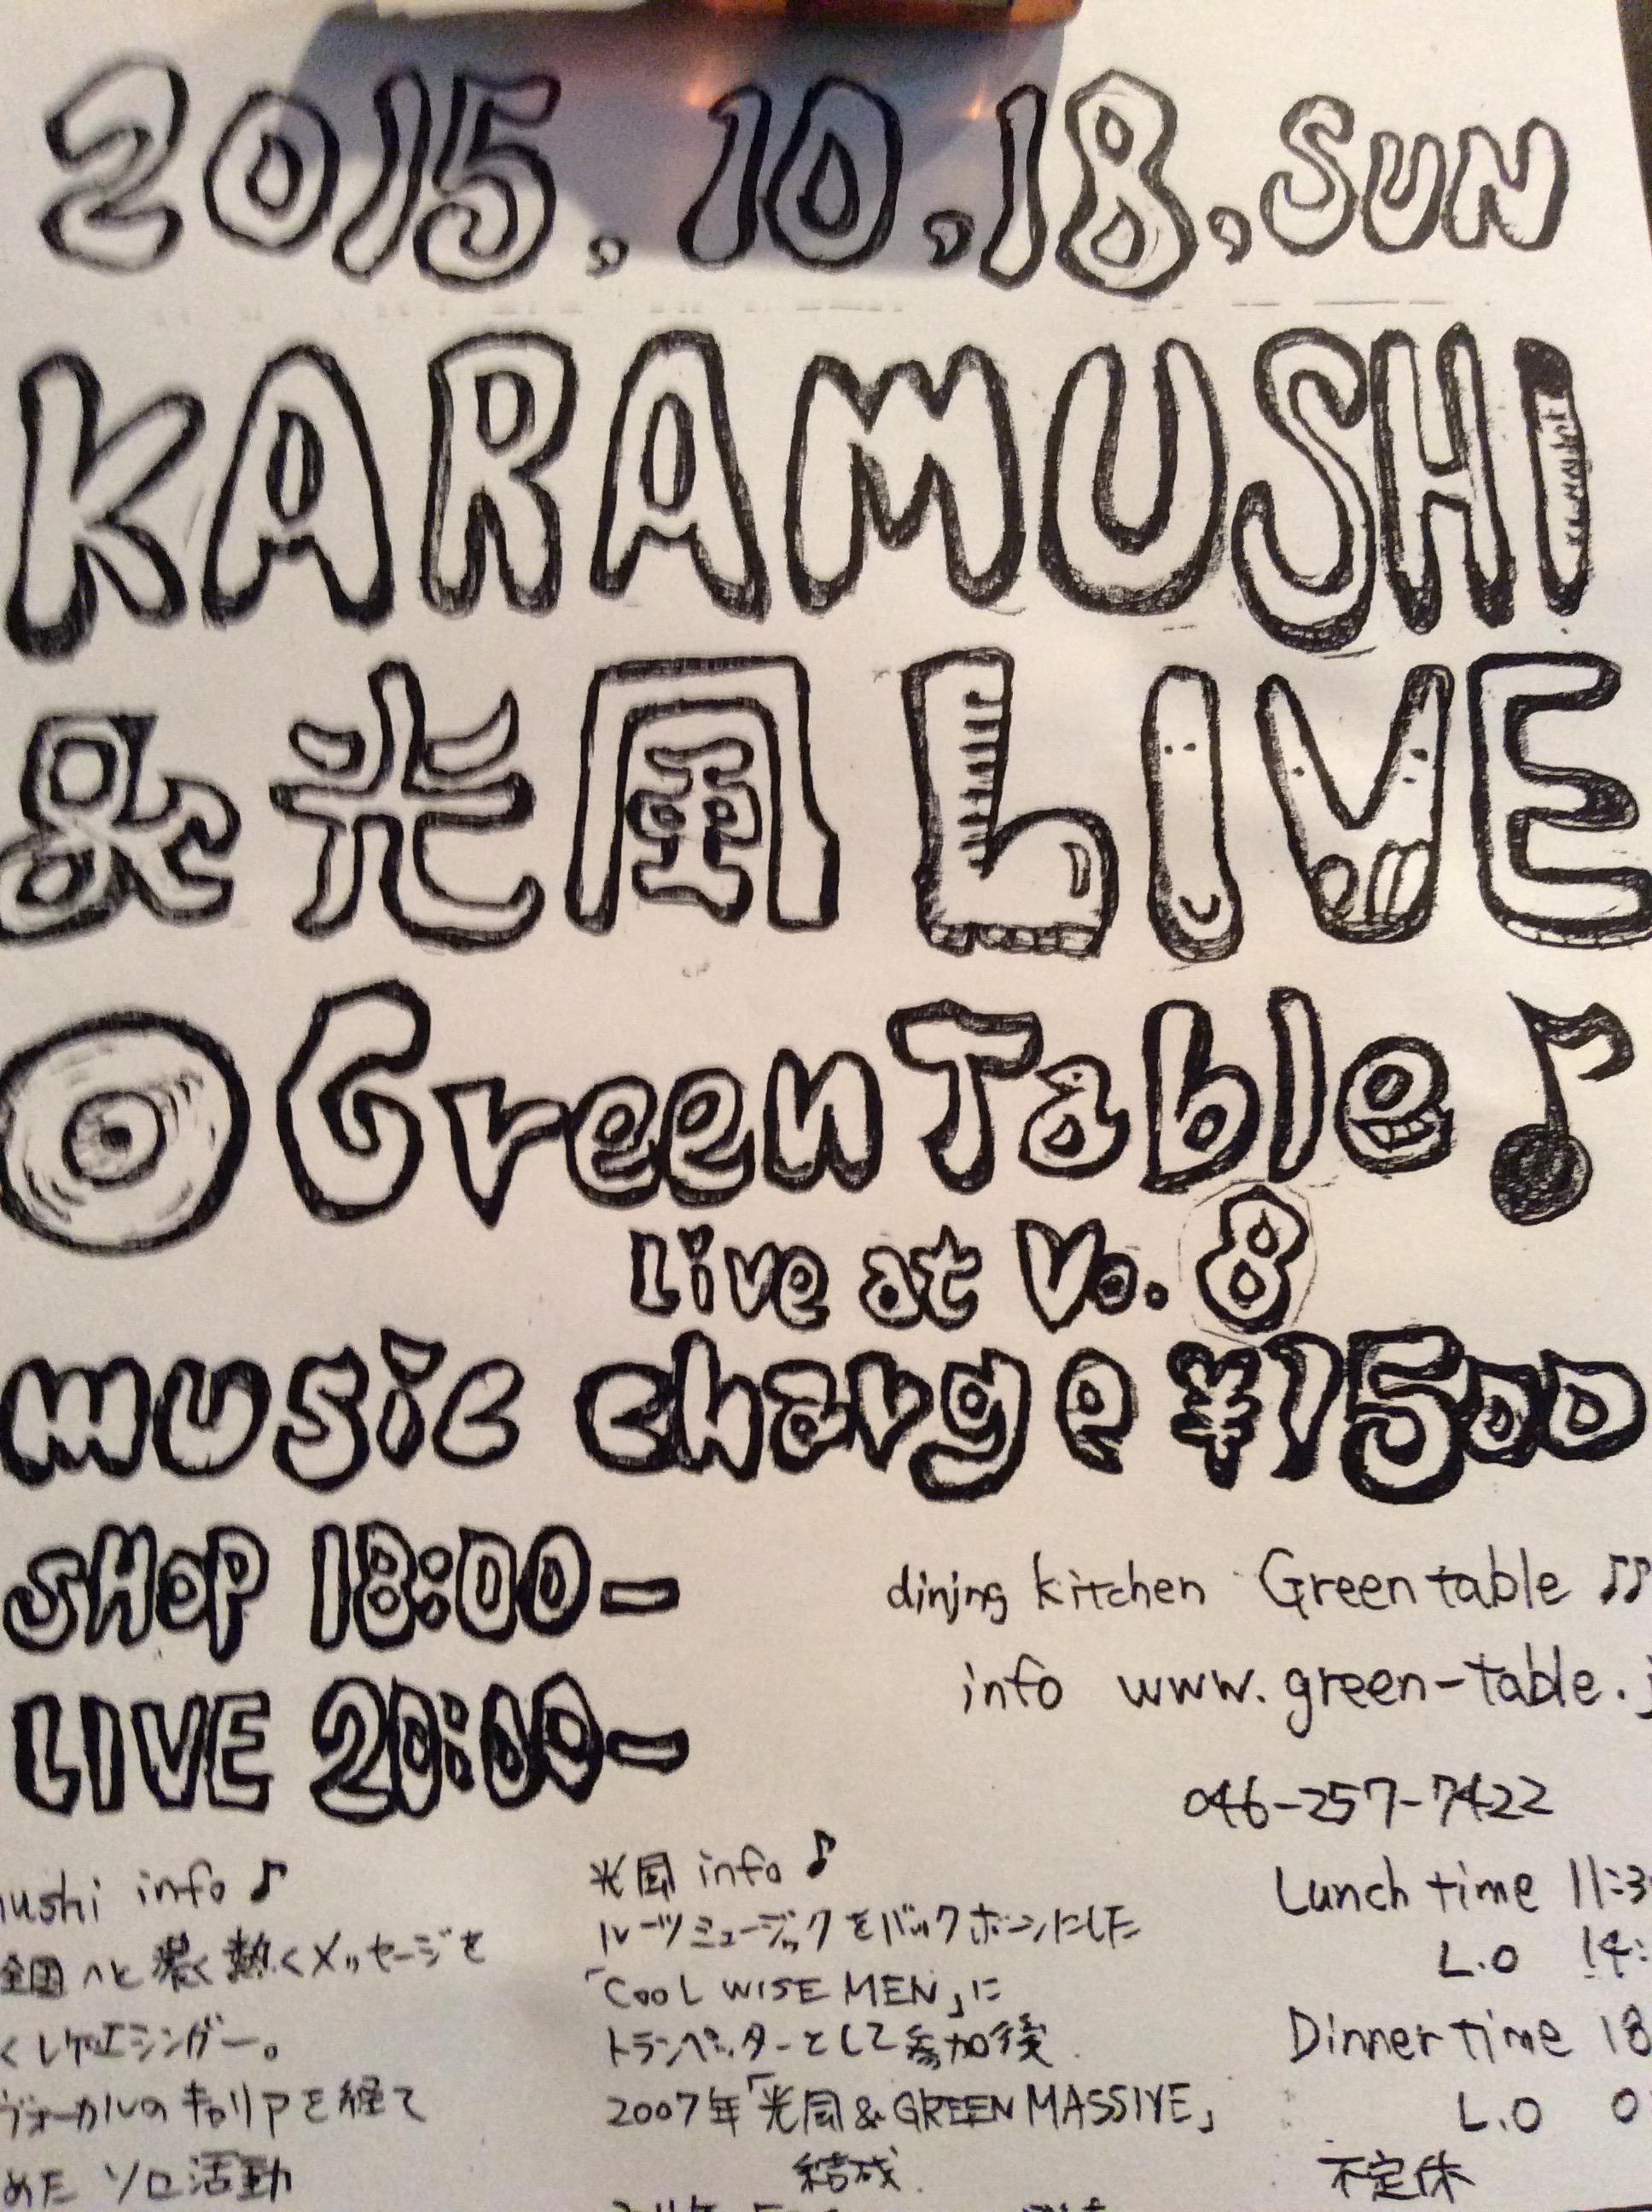 2015.10.18.SUN
KARAMUSHI
&光風 LIVE
Green Table♪
Live at Vo.8
music charge ¥1500
SHOP 18:00-
LIVE 20:00-
dining kitchen Green table ♫
info www.green-table.j
046-257-7422
Lunch time 11:3
L.O 14:
Dinner time 18
L.O 0
不定休
ushi info♪
全国へと濃く熱くメッセージを
シンガー。
ヴォーカルのキャリアを経て
めた ソロ活動
光風 info♪
ルーツミュージックをバックボーンにした
「COOL WISE MEN」に
トランペッターとして参加後
2007年「光風&GREEN MASSIVE」
結成